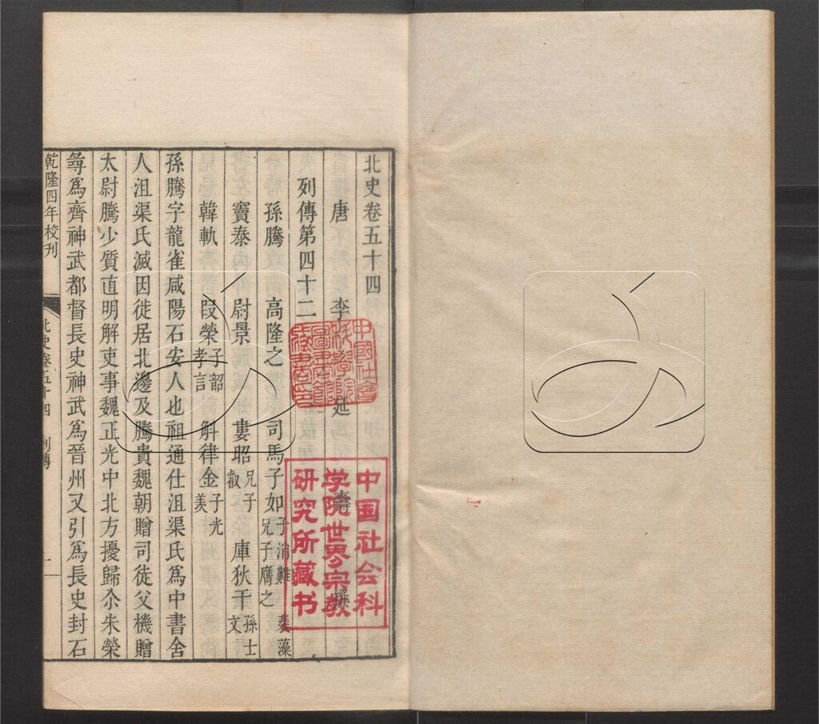 北史卷五十四
唐 李 延 壽 撰
列傳第四十二
孫騰 高隆之 司馬子如 子消難 兄子膺之 裴藻
竇泰 尉景 婁昭 兄子叡 庫狄干 孫士文
韓軌 段榮 子韶 孝言 斛律金 子光 羨
孫騰字龍雀咸陽石安人也祖通仕沮渠氏爲中書舍
人沮渠氏滅因徙居北邊及騰貴魏朝贈司徒父機贈
太尉騰少質直明解吏事魏正光中北方擾歸尒朱榮
尋爲齊神武都督長史神武爲晉州又引爲長史封石
乾隆四年校刊 北史卷五十四 列傳 一
中國社會
科學院
圖書館
藏書印
中国社会科
学院世界宗教
研究所藏书